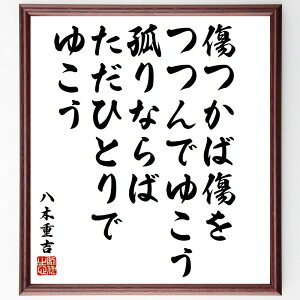 傷つかば傷を
つつんでゆこう
孤りならば
ただひとりで
ゆこう
八木重吉